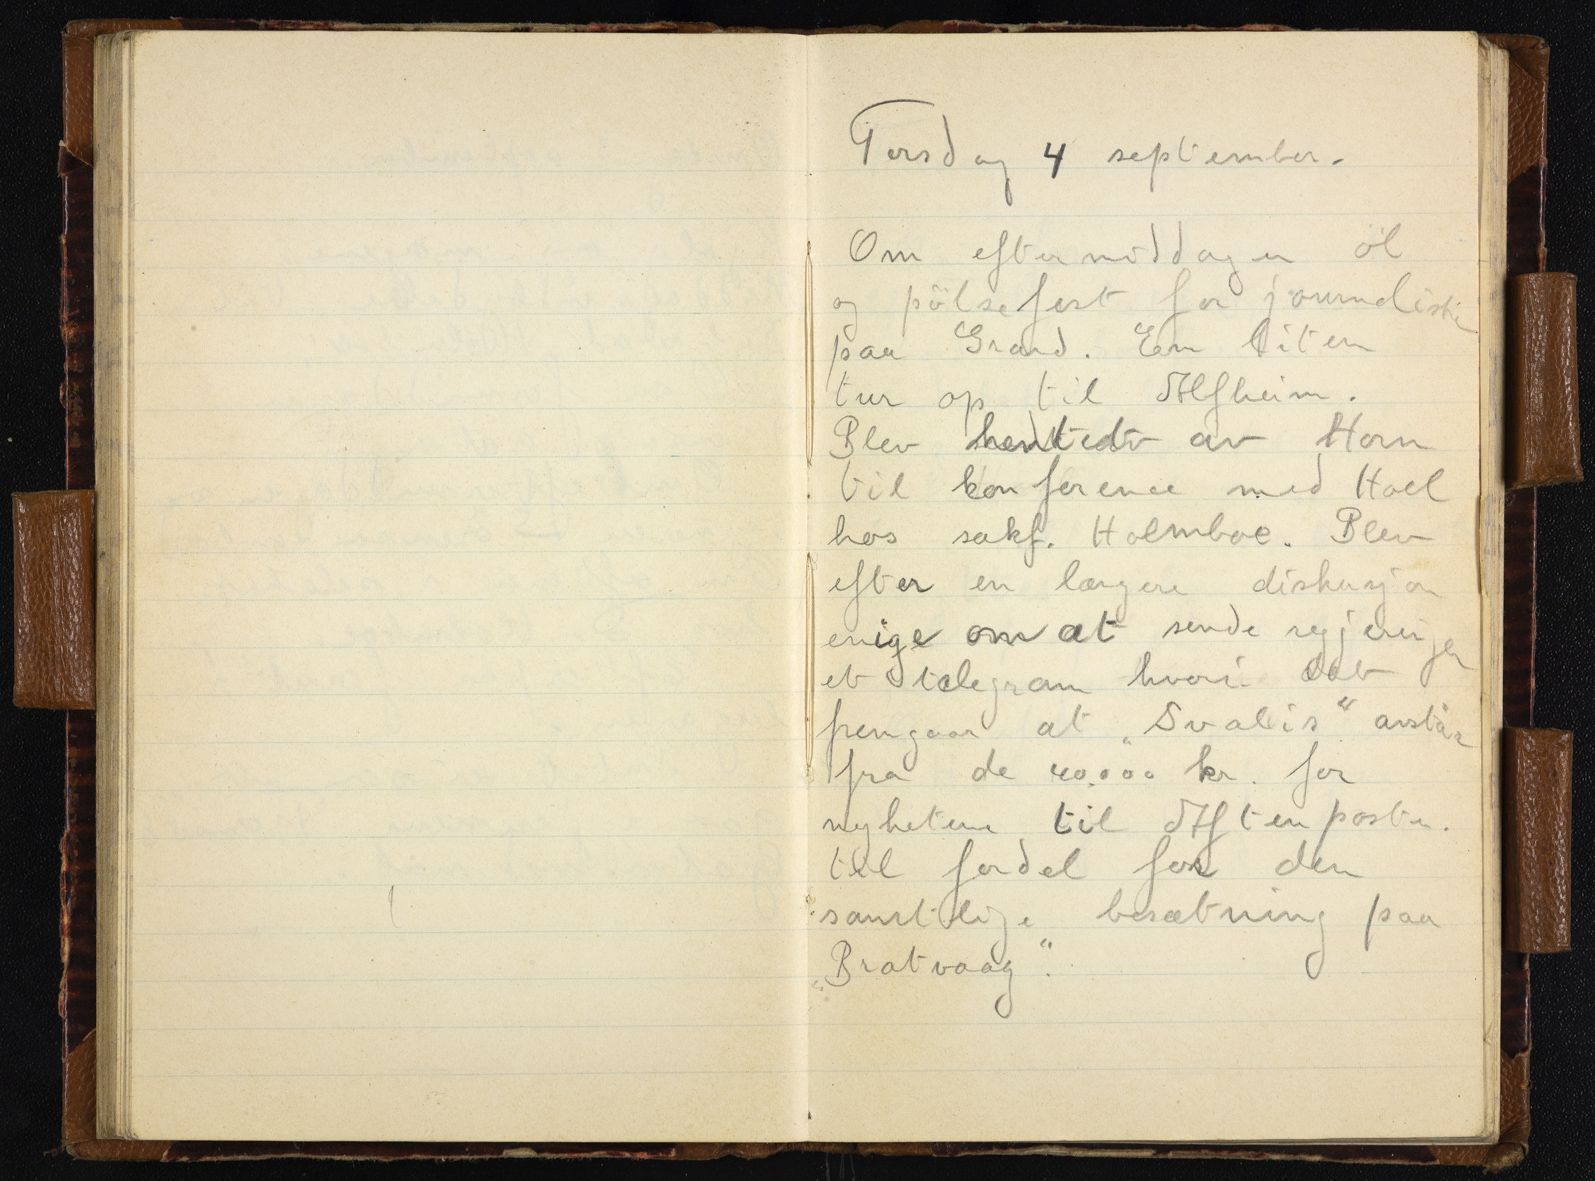 Torsdag 4 september.
Om eftermiddagen öl
og pölsefest for journalister
paa Grand. En liten
tur op til Alfheim.
Blev hentet av Horn
til konference med Hoel
hos sakf. Holmboe. Blev
efter en længere diskusjon
enige om at sende regjeringen
et telegram hvori det
fremgaar at „Svalis" avstår
fra de 40.000 kr. for
nyhetene til Aftenposten.
til fordel for den
samtlige besætning paa
„Bratvaag".